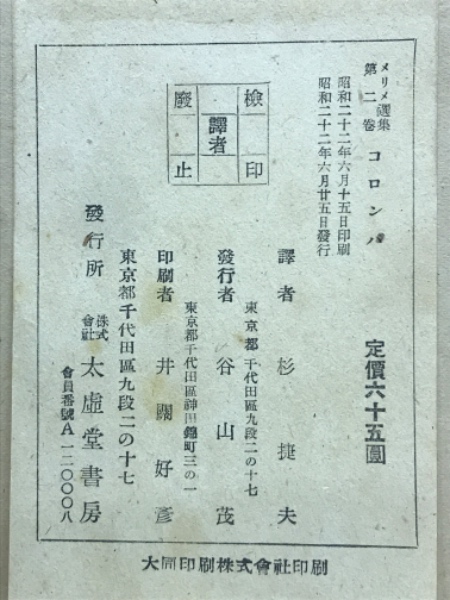 メリメ選集
第二卷 コロンバ
昭和二十二年六月十五日印刷
昭和二十二年六月廿五日發行
檢印
譯者
廢止
定價六十五圓
譯者 杉捷夫
東京都千代田區九段二の十七
發行者 谷山茂
東京都千代田區神田錦町三の一
印刷者 井關好彥
東京都千代田區九段二の十七
發行所 株式會社 太虛堂書房
會員番號A一二〇〇〇八
大同印刷株式會社印刷